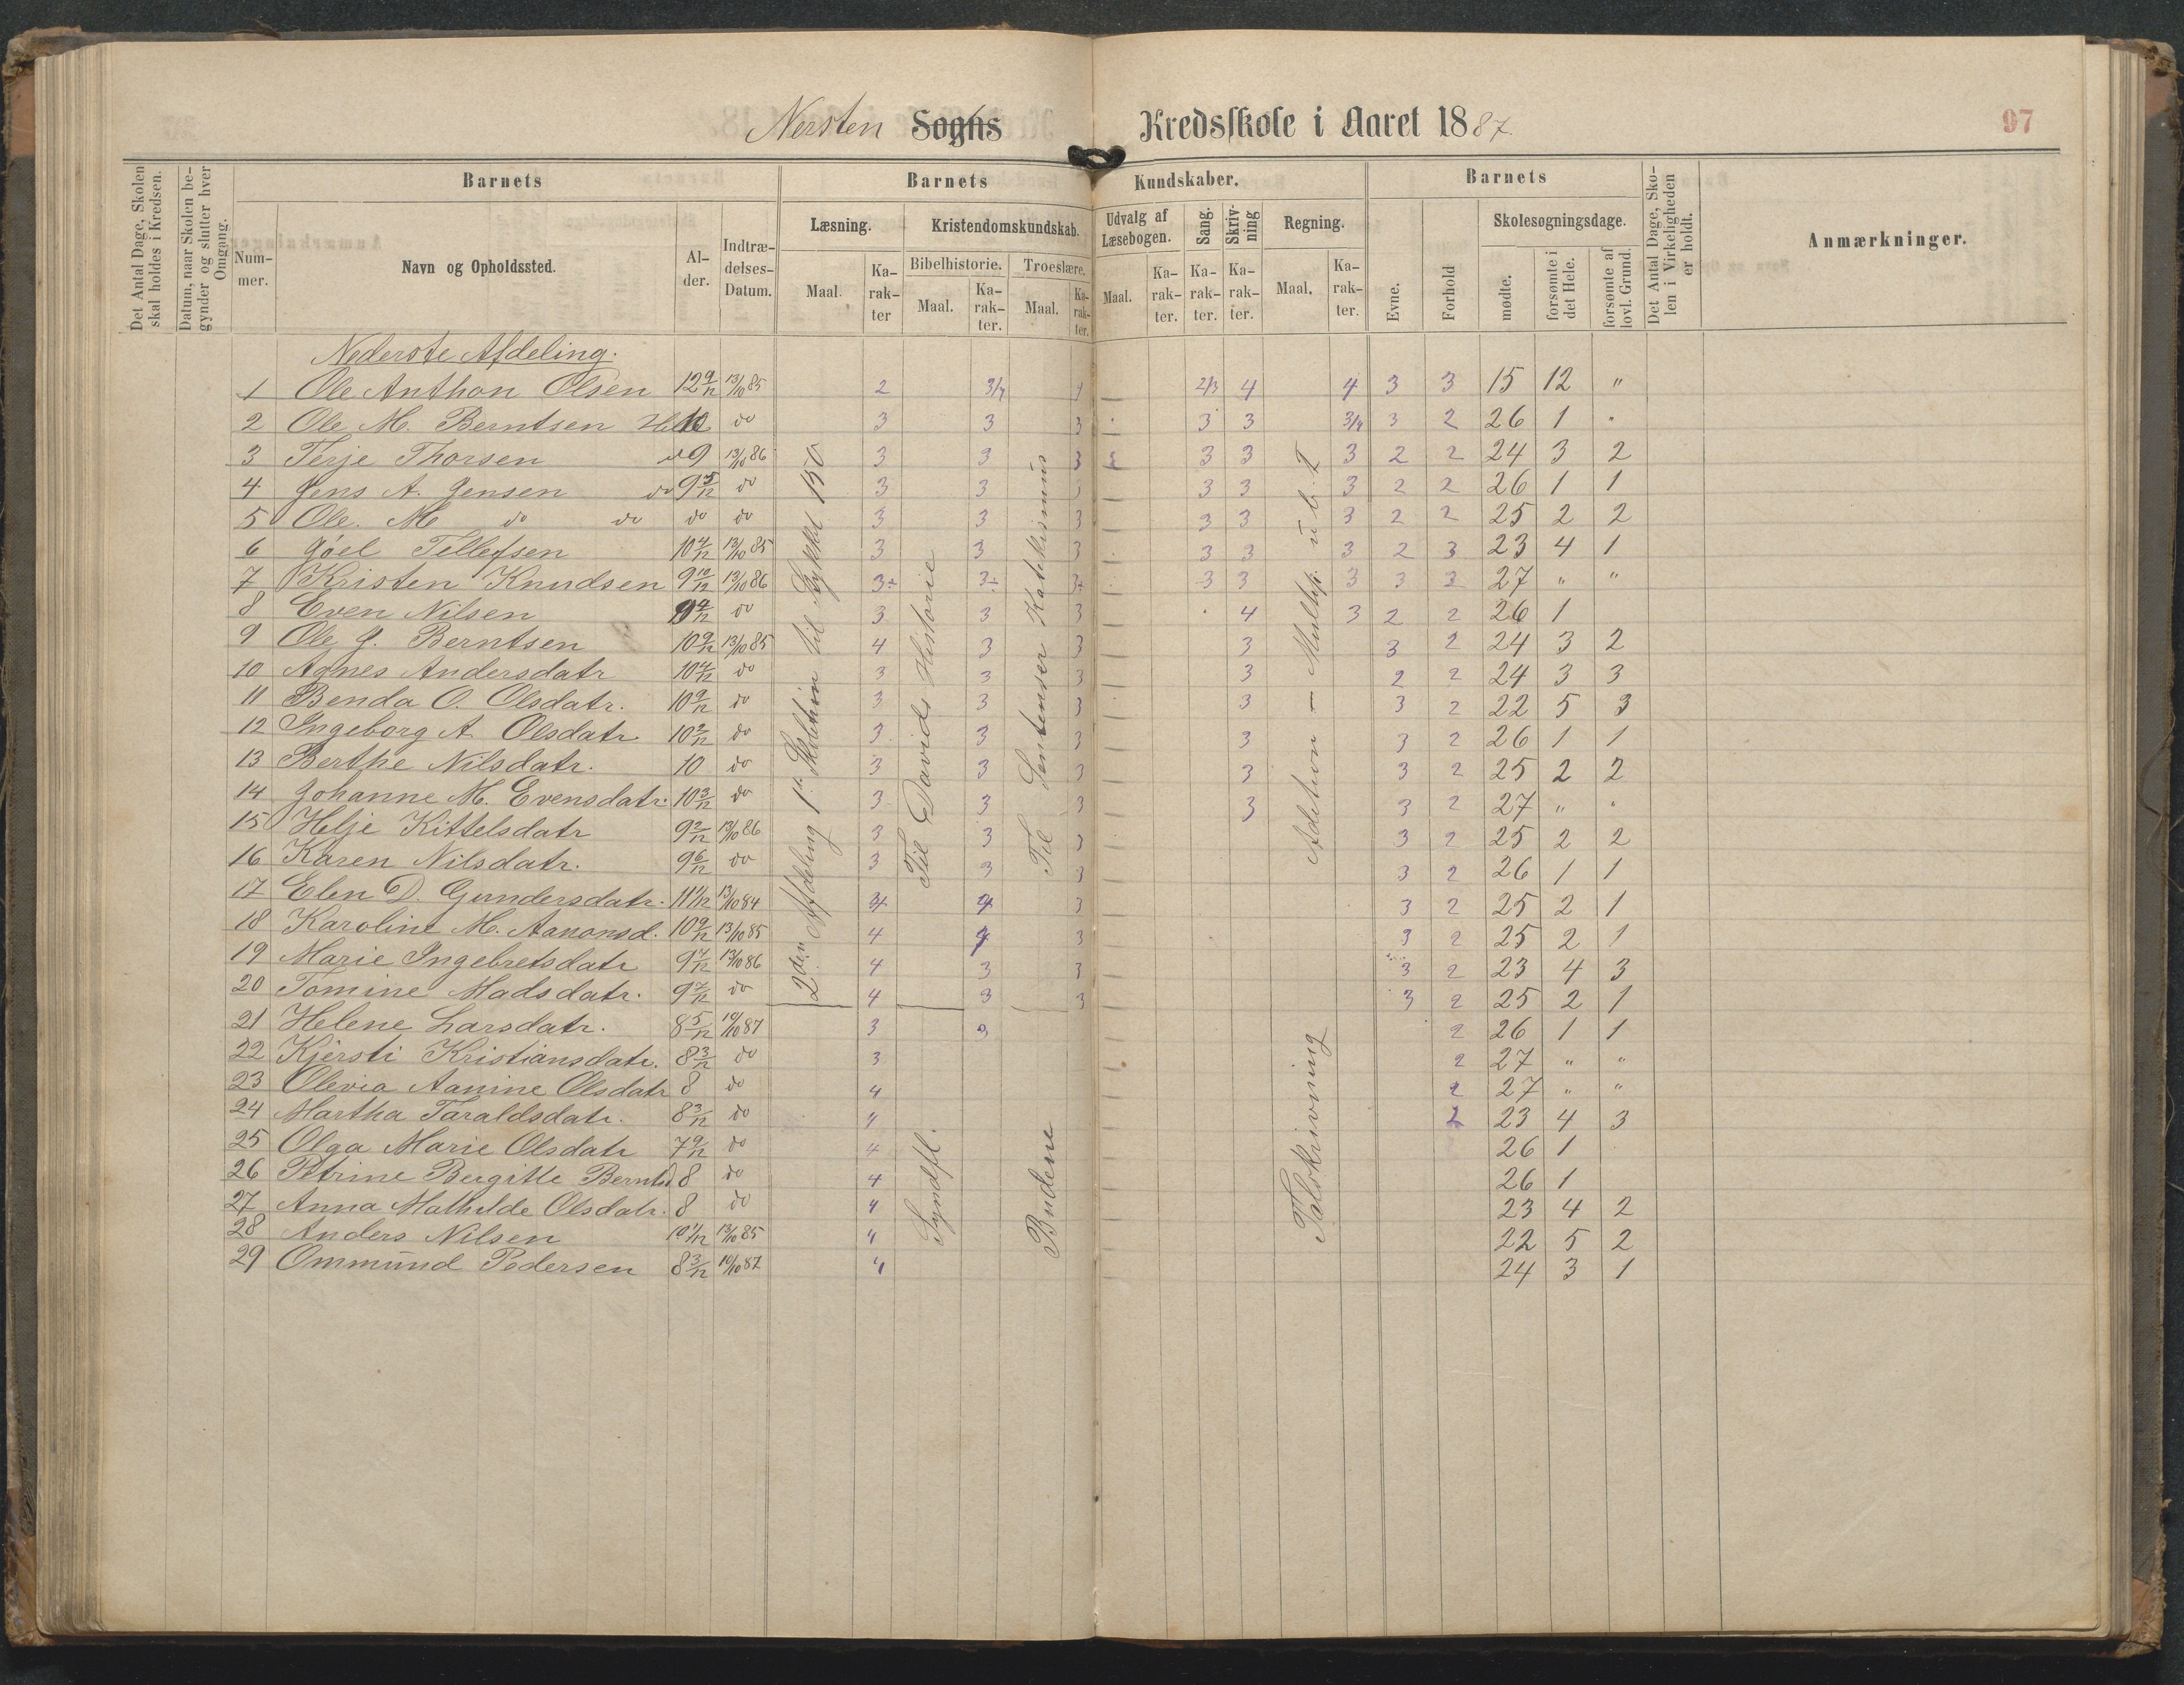 Nersten Sogns Kredsskole i Aaret 1887.
97
Det Antal Dage, Skolen skal holdes i Kredsen.
Datum, naar Skolen begynder og slutter hver Omgang.
Barnets
Nummer.
Navn og Opholdssted.
Alder.
Indtrædelses-Datum.
Barnets Kundskaber.
Læsning.
Maal.
Karakter
Kristendomskundskab.
Bibelhistorie.
Maal.
Karakter.
Troeslære.
Maal.
Karakter.
Udvalg af Læsebogen.
Maal.
Karakter.
Sang.
Karakter.
Skrivning
Karakter.
Regning.
Maal.
Karakter.
Barnets
Evne.
Forhold
Skolesøgningsdage.
mødte.
forsømte i det Hele.
forsømte af lovl. Grund.
Det Antal Dage, Skolen i Virkeligheden er holdt.
Anmærkninger.
Nederste Afdeling.
1 Ole Anthon Olsen 12 9/12 13/10 85 2 3/4 4 2/3 4 4 3 3 15 12 "
2 Ole M. Berntsen 10 do 3 3 3 3 3 3/4 3 2 26 1 "
3 Terje Thorsen do 9 13/10 86 3 3 3 3 3 3 2 2 24 3 2
4 Jens A. Jensen do 9 5/12 do 3 3 3 3 3 3 2 2 26 1 1
5 Ole. M do do do do 3 3 3 3 3 3 2 2 25 2 2
6 Jöel Tellefsen 10 4/12 13/10 85 3 3 3 3 3 3 2 3 23 4 1
7 Kristen Knudsen 9 10/12 13/10 86 3÷ 3÷ 3÷ 3 3 3 3 3 27 " "
8 Even Nilsen 9 4/12 do 3 3 3 4 3 2 2 26 1
9 Ole J. Berntsen 10 9/12 13/10 85 4 3 3 3 3 2 24 3 2
10 Agnes Andersdatr 10 4/12 do 3 3 3 3 2 2 24 3 3
11 Benda O. Olsdatr. 10 9/12 do 3 3 3 3 3 2 22 5 3
12 Ingeborg A. Olsdatr 10 2/12 do 3 3 3 3 3 2 26 1 1
13 Berthe Nilsdatr. 10 do 3 3 3 3 3 2 25 2 2
14 Johanne M. Evensdatr. 10 3/12 do 3 3 3 3 3 2 27 " "
15 Helje Kittelsdatr 9 2/12 13/10 86 3 3 3 3 2 25 2 2
16 Karen Nilsdatr. 9 6/12 do 3 3 3 3 2 26 1 1
17 Elen D. Gundersdatr. 11 1/12 13/10 84 4 3 3 2 25 2 1
18 Karoline M. Aanonsd. 10 9/12 13/10 85 4 4 3 3 2 25 2 1
19 Marie Ingebretsdatr 9 4/12 13/10 86 4 3 3 3 2 23 4 3
20 Tomine Madsdatr. 9 7/12 do 4 3 3 3 2 25 2 1
21 Helene Larsdatr. 8 5/12 10/10 87 3 3 2 26 1 1
22 Kjersti Kristiansdatr. 8 3/12 do 3 2 27 " "
23 Olevia Aanine Olsdatr 8 do 4 2 27 " "
24 Martha Taraldsdatr. 8 3/12 do 4 2 23 4 3
25 Olga Marie Olsdatr 7 9/12 do 4 26 1
26 Petrine Bergitte Berntsd 8 do 4 26 1
27 Anna Mathilde Olsdatr. 8 do 4 23 4 2
28 Anders Nilsen 10 1/12 13/10 85 4 22 5 2
29 Ommund Pedersen 8 3/12 10/10 87 4 24 3 1
2den Afdeling 1ste Skoletrin til Stykke 150
Til Davids Historie
Til Sentenser Katekismus
Adetion – Multipl.
Syndfl.
Budene
Talskrivning